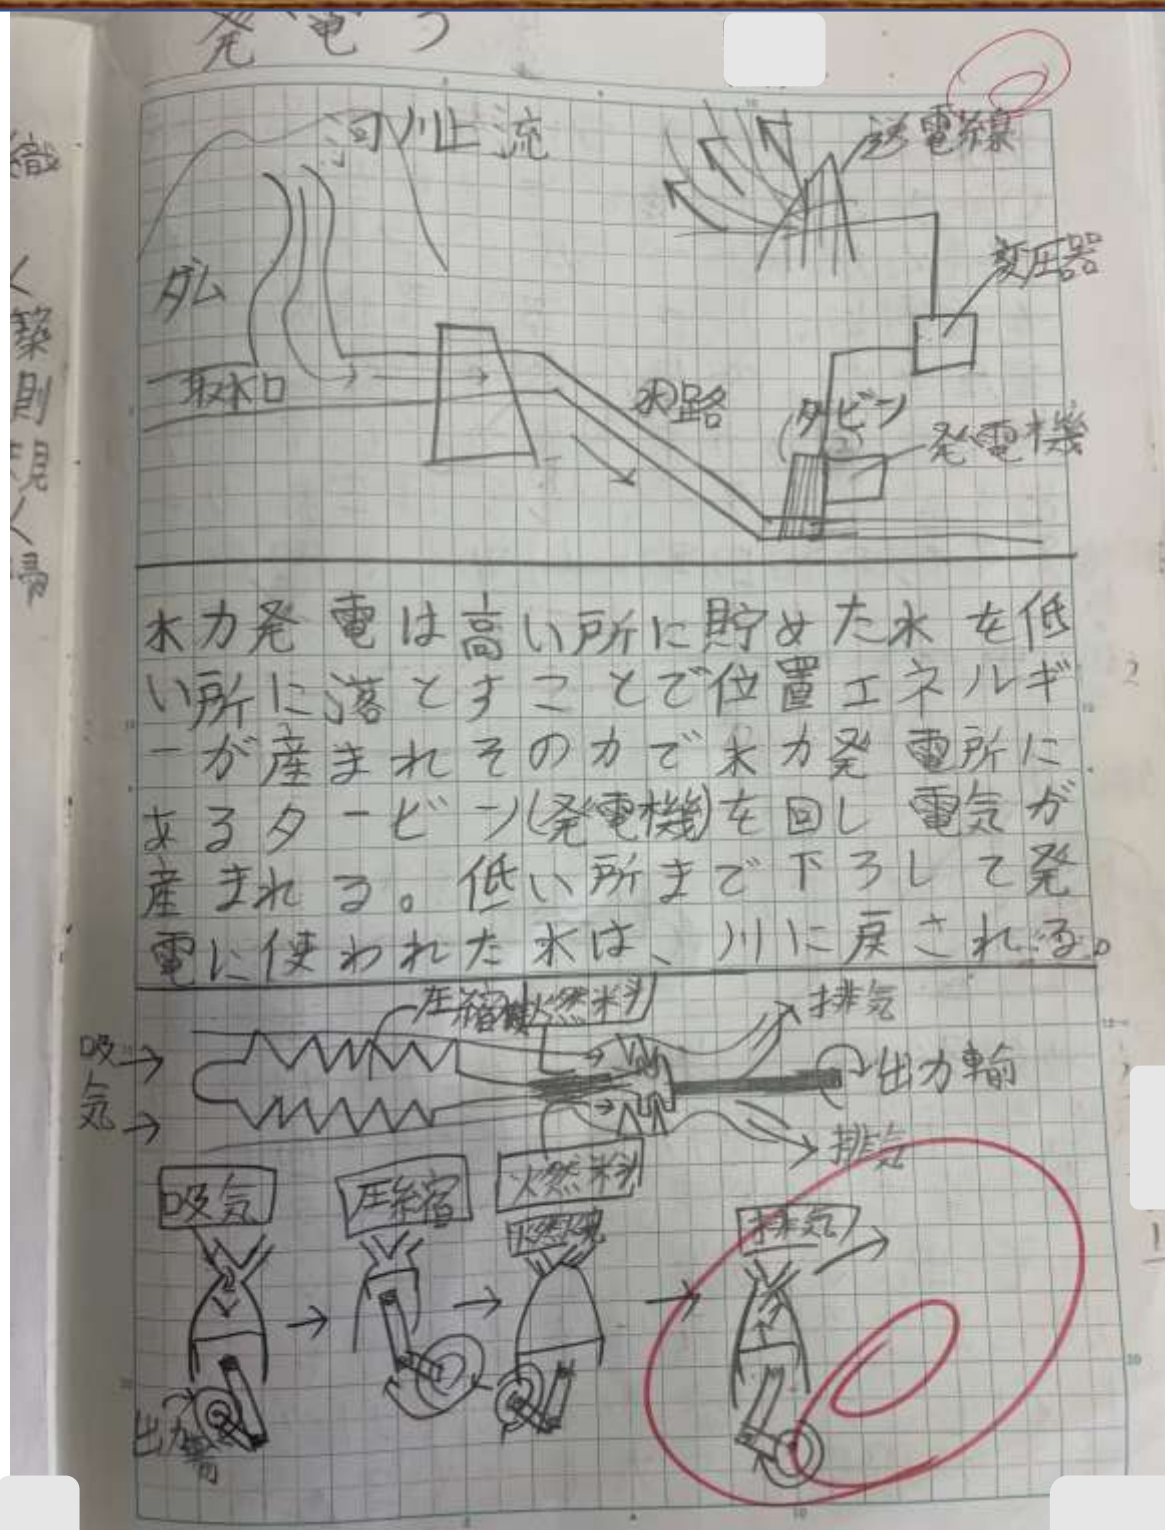 発電う
河川上流
送電線
ダム
変圧器
取水口
水路
タビン
発電機
水力発電は高い所に貯めた水を低
い所に落とすことで位置エネルギ
ーが産まれその力で水力発電所に
あるタービン(発電機)を回し電気が
産まれる。低い所まで下ろして発
電に使われた水は、川に戻される。
圧縮機
燃料
排気
吸気
出力軸
排気
吸気
圧縮
燃料
燃焼
排気
出力軸